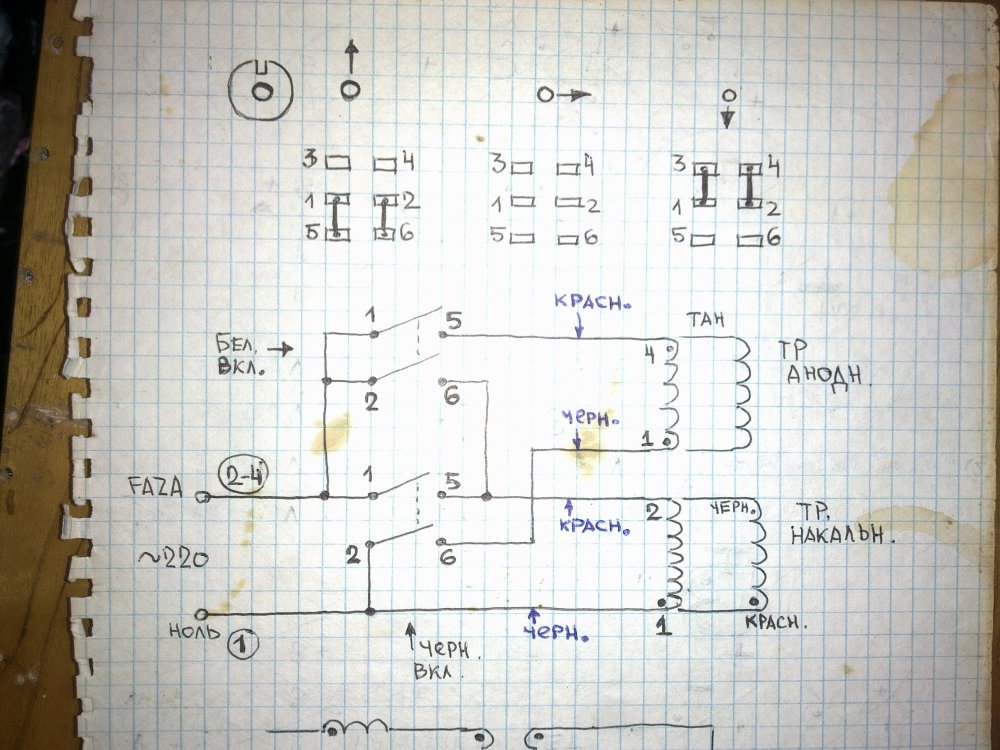 3 4 3 4 3 4
1 2 1 2 1 2
5 6 5 6 5 6
КРАСН.
1 5 ТАН
БЕЛ. 4 ТР
ВКЛ. АНОДН.
2 6
ЧЕРН.
1
2-4 1 5
FAZA
2 ЧЕРН. ТР.
КРАСН. НАКАЛЬН.
~220 2 6
НОЛЬ 1 ЧЕРН. 1 КРАСН.
ЧЕРН.
ВКЛ.